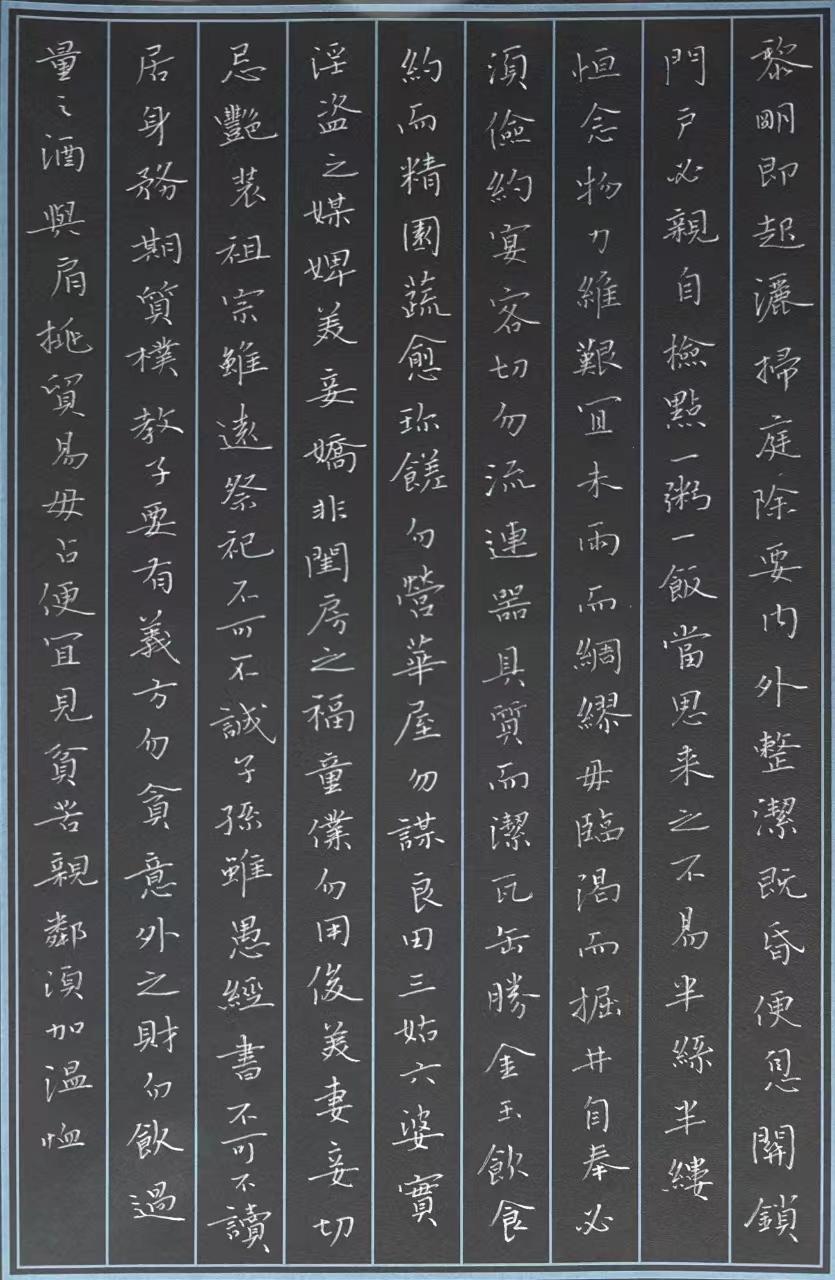 黎明即起灑掃庭除要內外整潔既昏便息關鎖
門戶必親自檢點一粥一飯當思来之不易半絲半縷
恒念物力維艱宜未雨而綢繆毋臨渴而掘井自奉必
須儉約宴客切勿流連器具質而潔瓦缶勝金玉飲食
約而精園蔬愈珎饈勿營華屋勿謀良田三姑六婆實
淫盜之媒婢美妾嬌非閨房之福童僕勿用俊美妻妾切
忌艷装祖宗雖遠祭祀不可不誠子孫雖愚經書不可不讀
居身務期質樸教子要有義方勿貪意外之財勿飲過
量之酒與肩挑貿易毋占便宜見貧苦親鄰須加溫恤